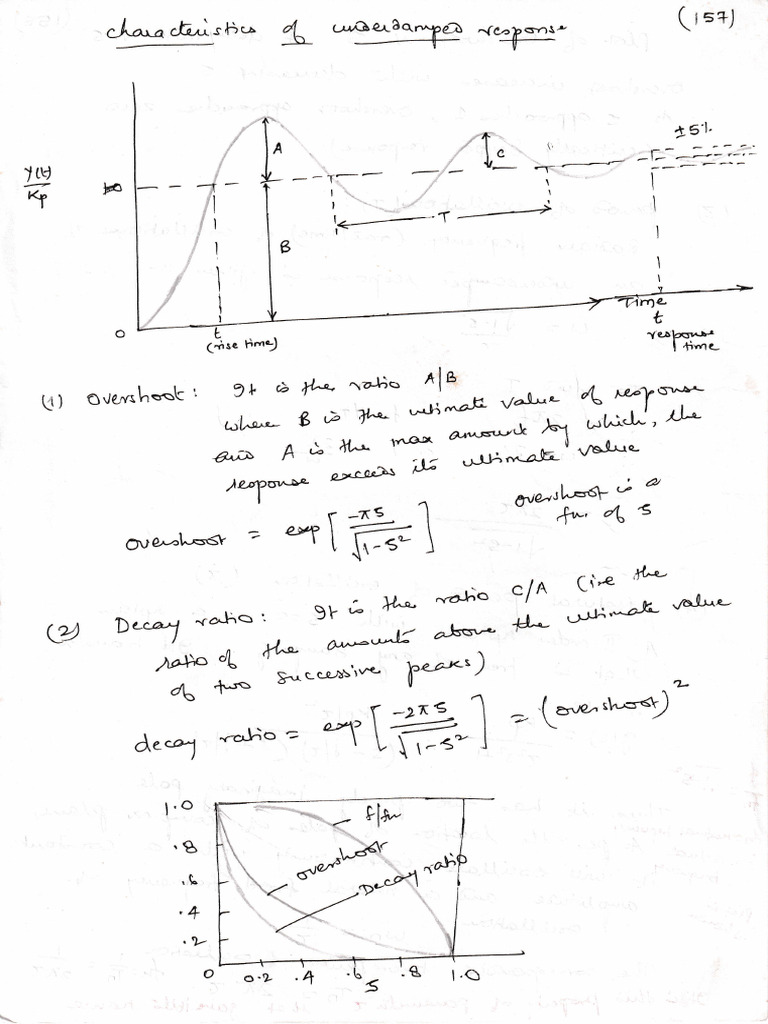 (157)
characteristics of underdamped response
±5%
A
C
Y(t)
Kp
T
B
0
t
(rise time)
Time
t
response
time
(1) Overshoot: It is the ratio A/B
where B is the ultimate value of response
and A is the max amount by which, the
response exceeds its ultimate value
overshoot = exp [ -πS / √1-S² ]
overshoot is a
fn. of S
(2) Decay ratio: It is the ratio C/A (i.e the
ratio of the amounts above the ultimate value
of two successive peaks)
decay ratio = exp [ -2πS / √1-S² ] = (overshoot)²
1.0
.8
.6
.4
.2
0
f/fn
overshoot
Decay ratio
0.2 .4 .6 .8 1.0
S